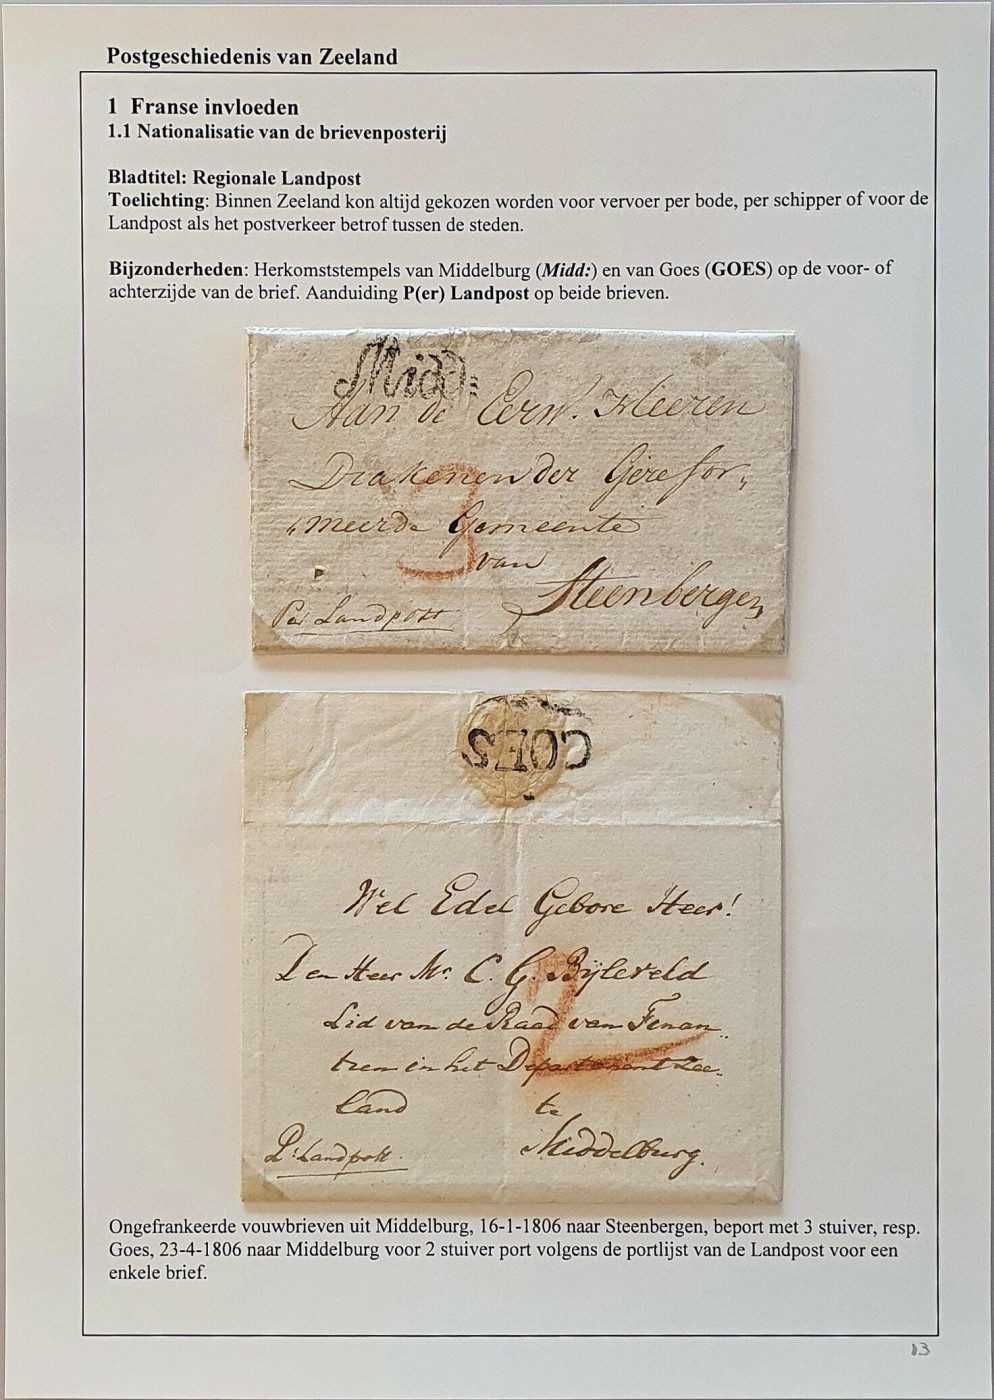 Postgeschiedenis van Zeeland
1 Franse invloeden
1.1 Nationalisatie van de brievenposterij
Bladtitel: Regionale Landpost
Toelichting: Binnen Zeeland kon altijd gekozen worden voor vervoer per bode, per schipper of voor de
Landpost als het postverkeer betrof tussen de steden.
Bijzonderheden: Herkomststempels van Middelburg (Midd:) en van Goes (GOES) op de voor- of
achterzijde van de brief. Aanduiding P(er) Landpost op beide brieven.
Midd:
Aan de Eerw. Heeren
Diakenen der Gerefor„
„meerde Gemeente
3
van
Steenbergen
Per Landpost
GOES
Wel Edel Gebore Heer!
Den Heer Mr. C. G. Bijleveld
2
Lid van de Raad van Finan„
tien in het Departement Zee„
land te
Middelburg.
Pr Landpost
Ongefrankeerde vouwbrieven uit Middelburg, 16-1-1806 naar Steenbergen, beport met 3 stuiver, resp.
Goes, 23-4-1806 naar Middelburg voor 2 stuiver port volgens de portlijst van de Landpost voor een
enkele brief.
13